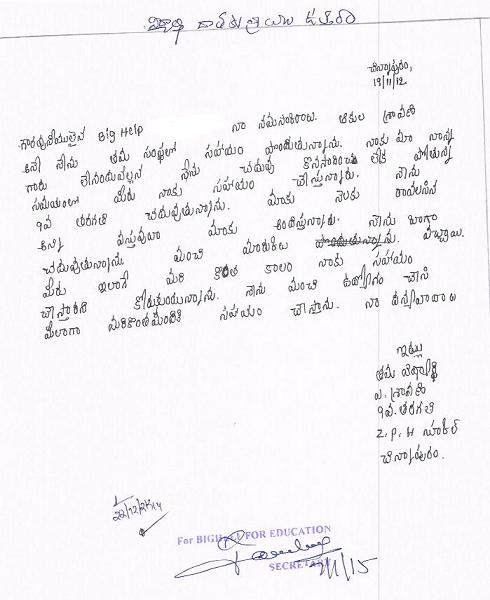 విద్యార్థి దాతకు వ్రాయు ఉత్తరం
చిన్నాపురం,
19/11/12.
గౌరవనీయులైన Big Help నా నమస్కారాలు. ఆకుల శ్రావణి
అనే నేను తమ సంస్థలో సహాయం పొందుతున్నాను. నాకు మా నాన్న
గారు లేనందువల్లన నేను చదువు కొనసాగించ లేక పోతున్న
సమయంలో మీరు నాకు సహాయం చేస్తున్నారు. నేను
9వ తరగతి చదువుతున్నాను. మాకు నెలకు కావలసిన
అన్ని వస్తువులు మాకు అందిస్తున్నారు. నేను బాగా
చదువుతున్నాను మంచి మార్కులు పొందుతున్నాను. వచ్చాయి.
మీరు ఇలాగే మరి కొంత కాలం నాకు సహాయం
చేస్తారని కోరుకుంటున్నాను. నేను మంచి ఉద్యోగం చేసి
మీలాగా మరికొంతమందికి సహాయం చేస్తాను. నా ధన్యవాదాలు
ఇట్లు
తమ విద్యార్థి
ఎ. శ్రావణి
9వ. తరగతి
Z.P.H స్కూల్
చిన్నాపురం.
22/12/2K14
For BIGHELP FOR EDUCATION
SECRETARY
/1/15